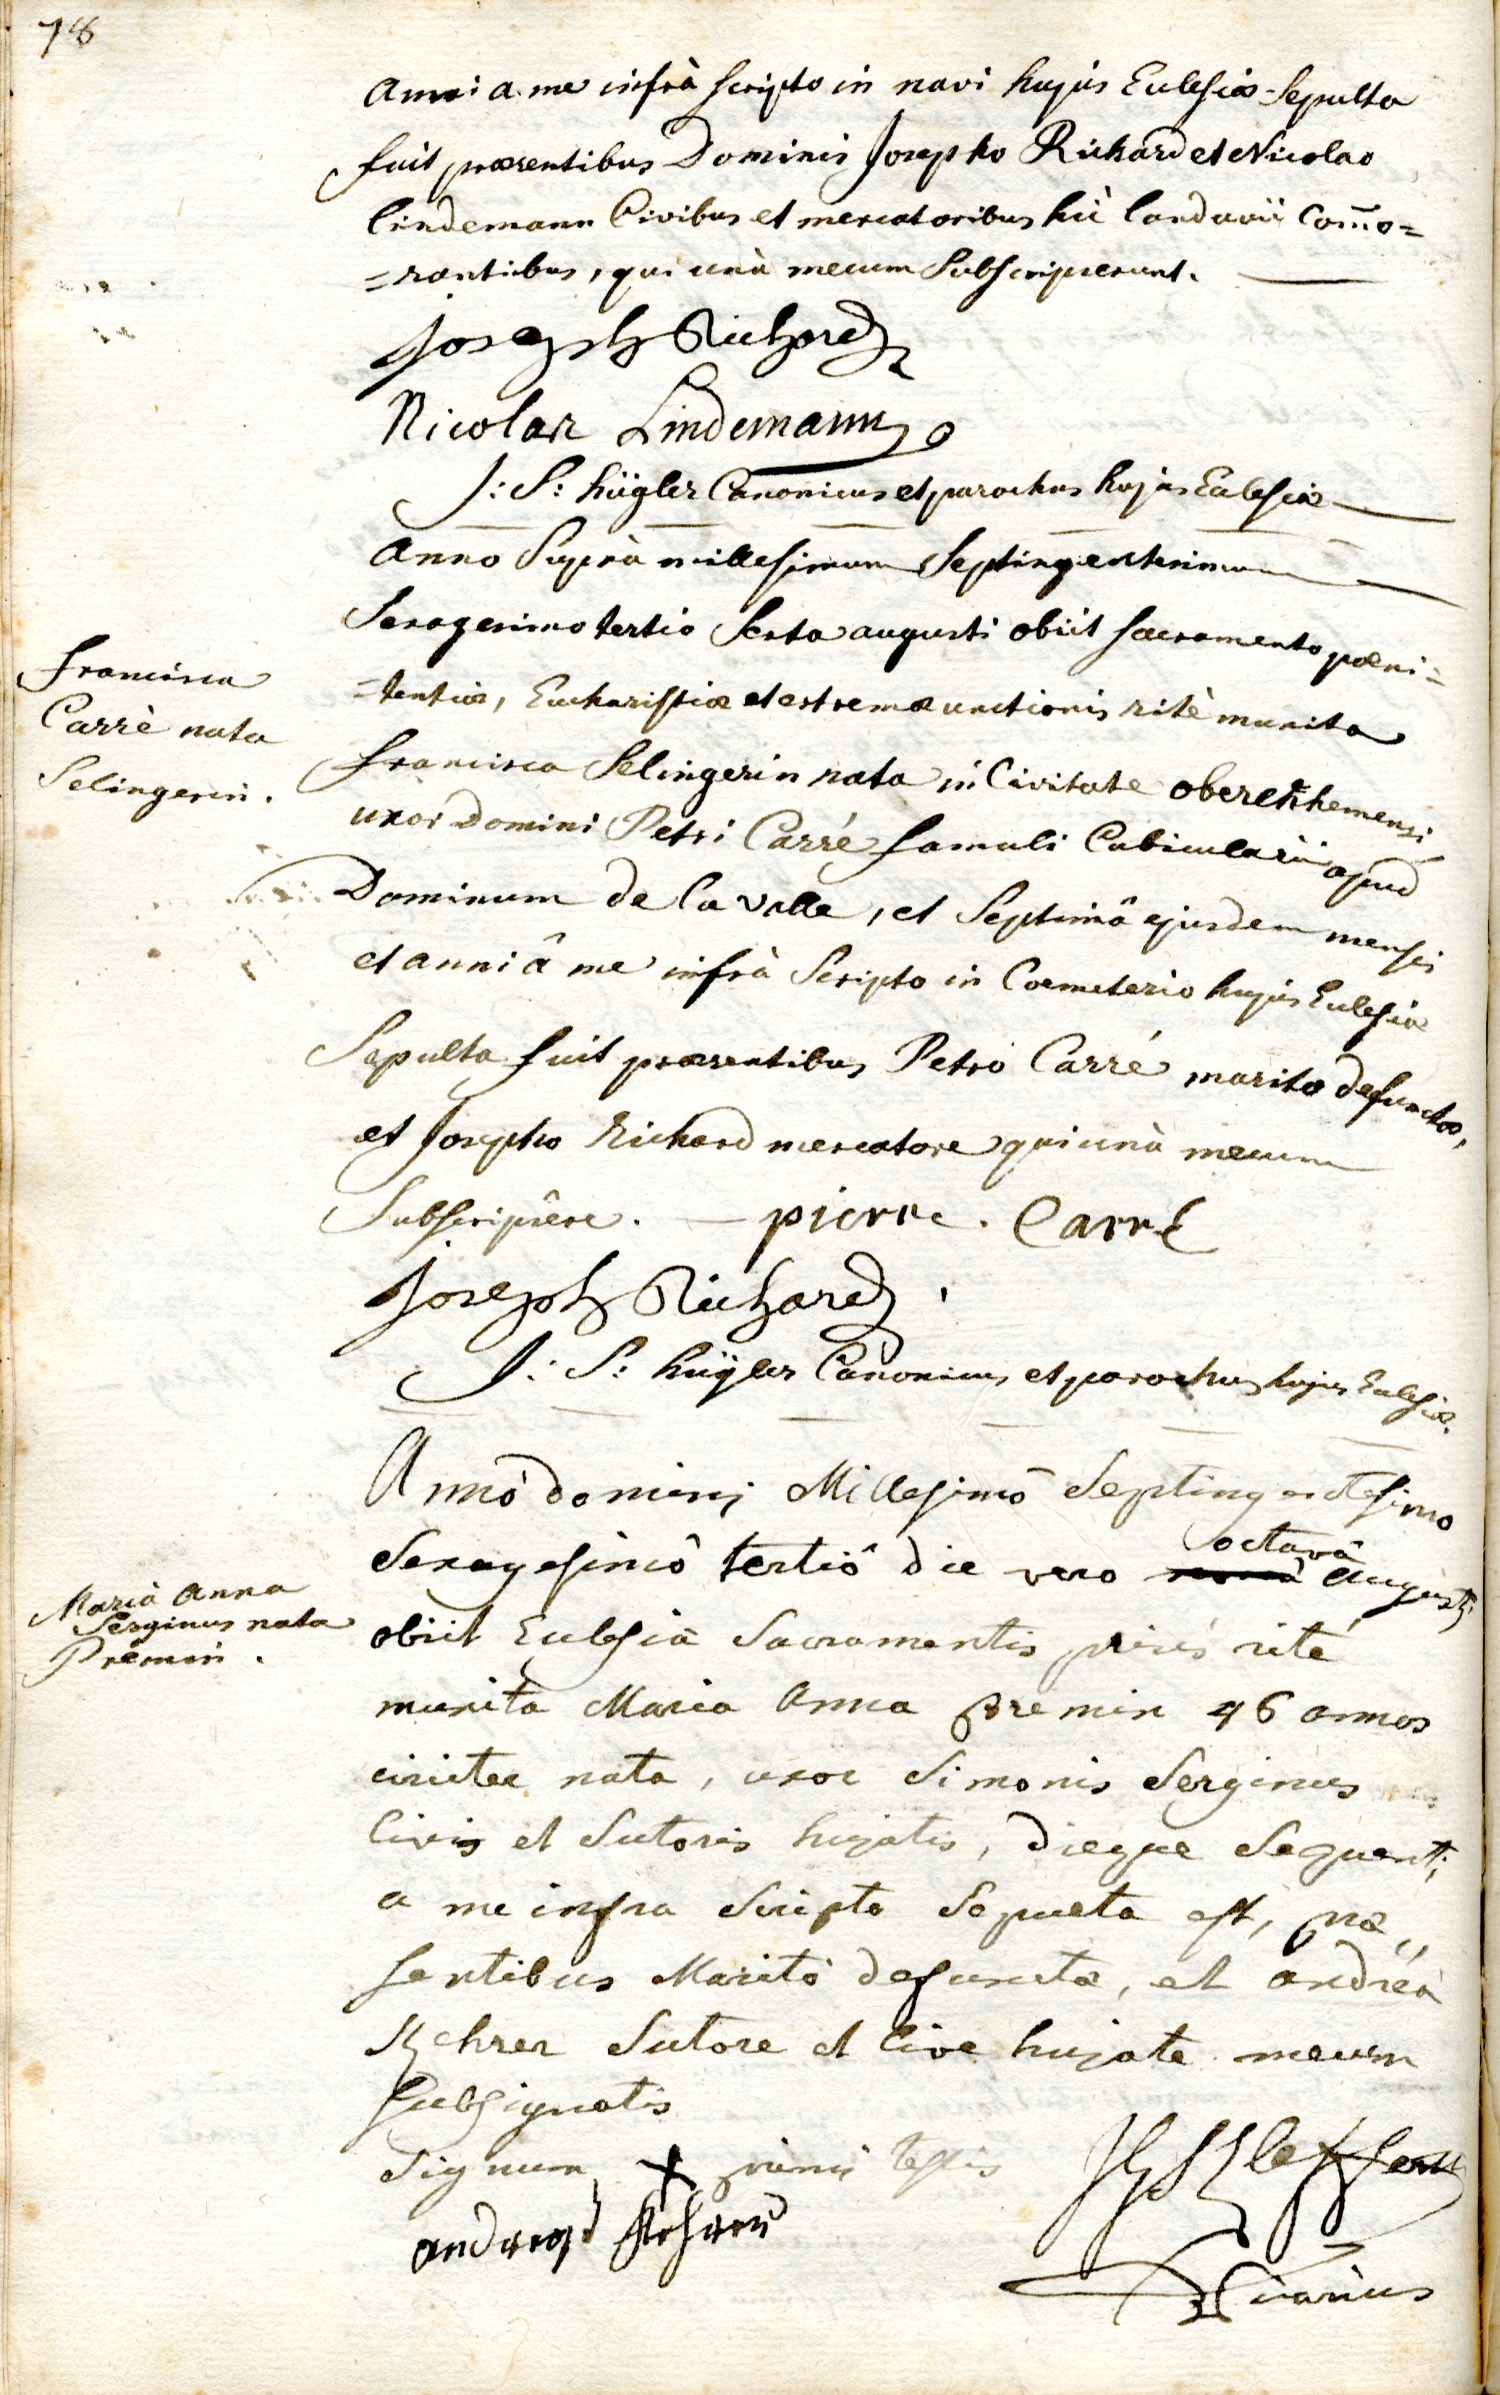 78
anni a me infrà scripto in navi hujus Eclesiæ Sepulta
fuit præsentibus Dominis Josepho Richard et Nicolao
Lindemann Civibus et mercatoribus hîc Landavii Com̄o=
=rantibus, qui unà mecum Subscripserunt.
Joseph Richard
Nicolas Lindemann
J: S: Hügler Canonicus et parochus hujus Eclesiæ
Anno Suprà millesimum Septingentesimum
Sexagesimo tertio Sexta augusti obiit sacramento pœni=
=tentiæ, Eucharistiæ et extremæ unctionis ritè munita
Francisca
Carrè nata
Selingerin.
Francisca Selingerin nata in Civitate oberehnhemensi
uxor Domini Petri Carré famuli Cubicularii apud
Dominum de La Valle, et Septimâ ejusdem mensis
et anni â me infrà Scripto in Coemeterio hujus Eclesiæ
Sepulta fuit præsentibus Petro Carré marito defunctæ,
et Josepho Richard mercatore qui unà mecum
Subscripsêre. pierre. Carré
Joseph Richard.
J: S: Hügler Canonicus et parochus hujus Eclesiæ.
Annô domini Millesimô Septingentesimo
Sexagesimô tertiô die vero octavâ Augusti
Maria Anna
Serginus nata
Premin.
obiit Eclesiæ Sacramentis priùs rite
munita Maria Anna Premin 46 annos
circiter nata, uxor Simonis Serginus
Civis et Sutoris hujatis, dieque Sequenti
a me infra Scripto Sepulta est, præ,,
sentibus Maritô defunctæ, et andreâ
Kehrer Sutore et Cive hujate mecum
Subsignatis
Signum X primi testis
andreas Kehrer
Vicarius